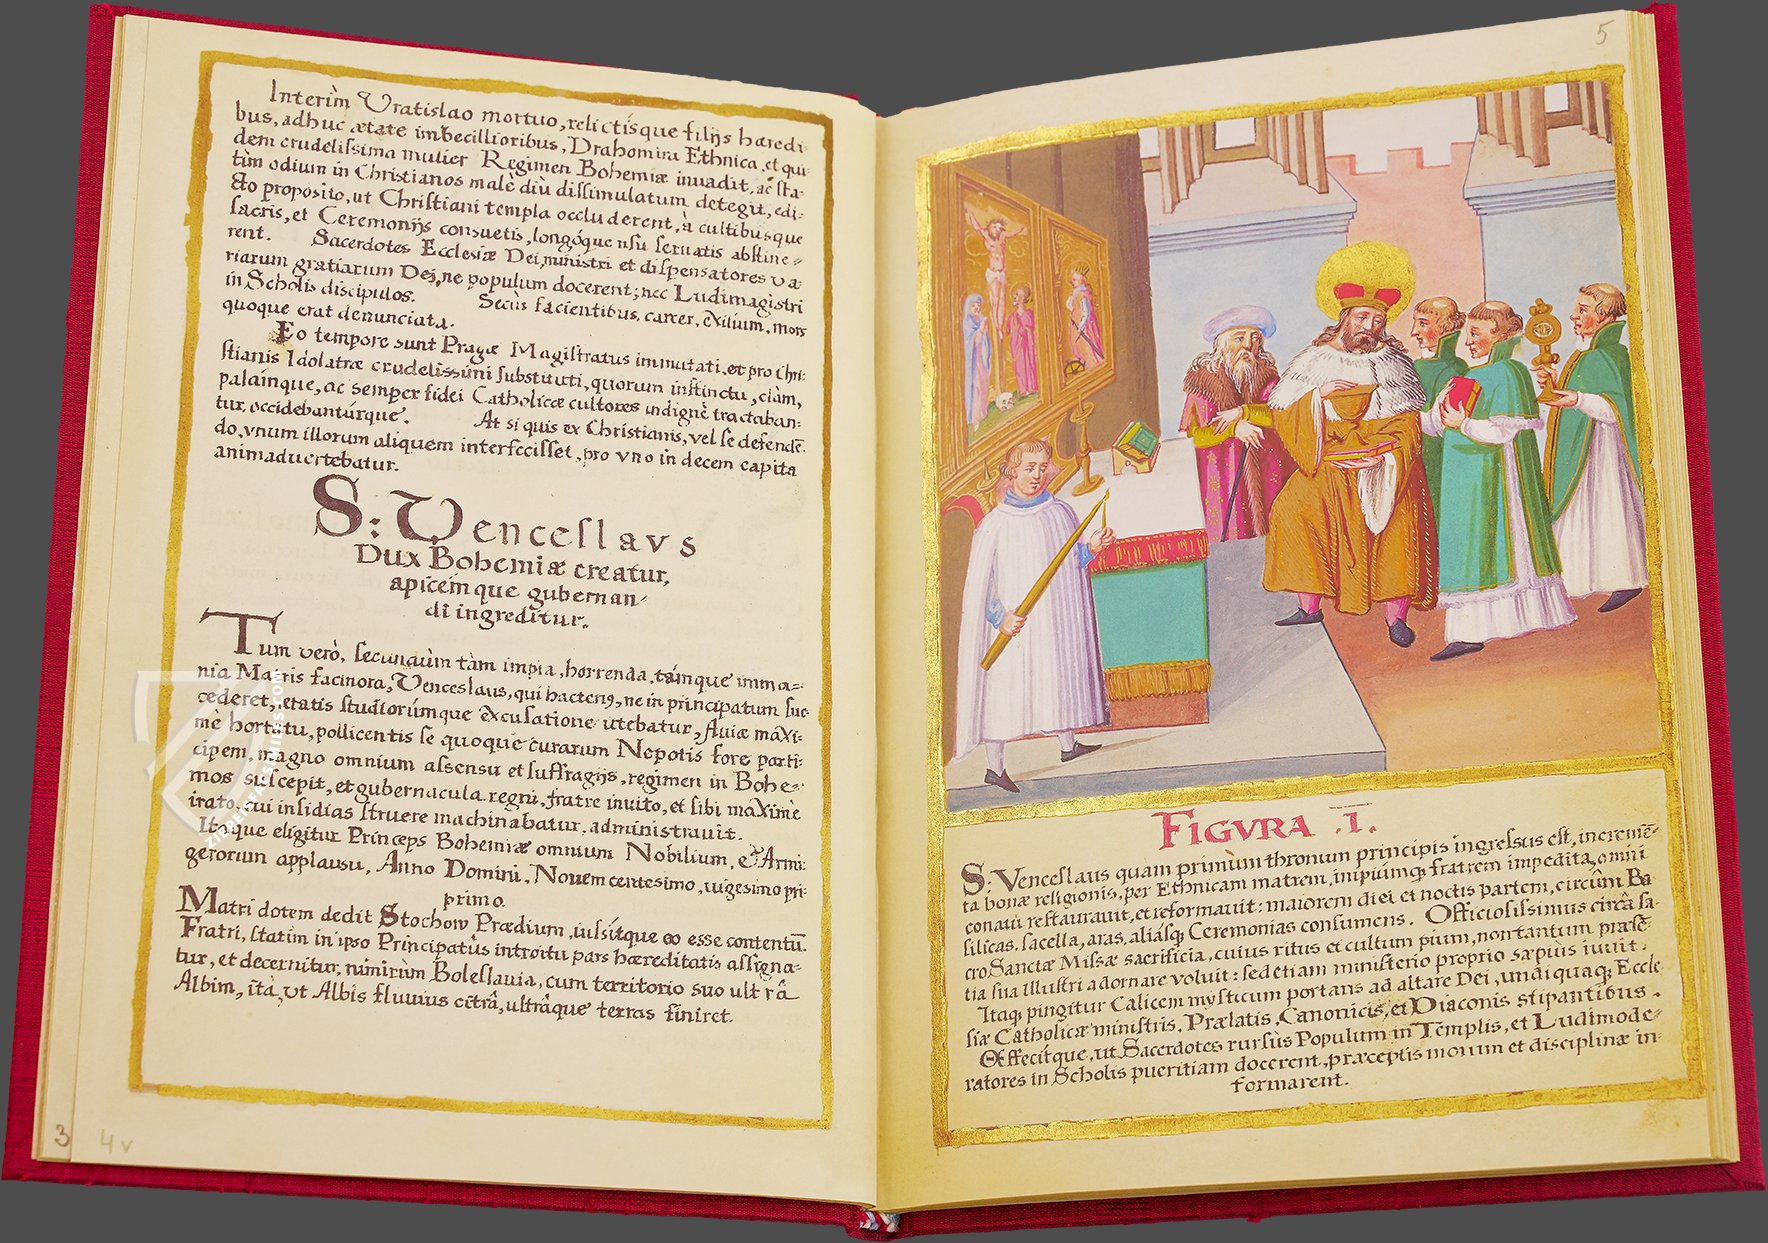 Interim Vratislao mortuo, relictisque filijs hæredi
bus, adhuc ætate imbecillioribus, Drahomira Ethnica, et qui
dem crudelissima mulier Regimen Bohemiæ inuadit, ac sta-
tim odium in Christianos malè diù dissimulatum detegit, edi-
cto proposito, ut Christiani templa occluderent, à cultibusque
sacris, et Ceremonijs consuetis, longóque usu seruatis abstine=
rent. Sacerdotes Ecclesiæ Dei, ministri et dispensatores va
riarum gratiarum Dei, ne populum docerent; nec Ludimagistri
in Scholis discipulos. Secùs facientibus, carcer, exilium, mors
quoque erat denunciata.
Eo tempore sunt Pragæ Magistratus immutati, et pro Chri-
stianis Idolatræ crudelissimi substituti, quorum instinctu, clàm,
palámque, ac semper fidei Catholicæ cultores indignè tractaban-
tur, occidebanturque. At si quis ex Christianis, vel se defendē
do, vnum illorum aliquem interfecisset, pro vno in decem capita
animaduertebatur.
S: Venceslavs
Dux Bohemiæ creatur,
apicemque gubernan-
di ingreditur.
Tum verò, secundùm tàm impia, horrenda, támque imma=
nia Matris facinora, Venceslaus, qui hacteng, ne in principatum suc
cederet, ætatis studiorúmque excusatione utebatur, Auiæ maxi-
mè hortatu, pollicentis se quoque curarum Nepotis fore parti-
cipem, magno omnium assensu et suffragijs, regimen in Bohe=
mos suscepit, et gubernacula regni, fratre inuito, et sibi maximè
irato, cui insidias struere machinabatur, administrauit.
Itaque eligitur Princeps Bohemiæ omnium Nobilium, & Armi
gerorum applausu, Anno Domini. Nouemcentesimo, uigesimo pri-
primo.
Matri dotem dedit Stochow Prædium, iussítque eo esse contentū.
Fratri, statim in ipso Principatùs introitu pars hæreditatis assigna-
tur, et decernitur, nimirùm Boleslauia, cum territorio suo ultrâ
Albim, ità, ut Albis fluuius citrâ, ultrâque terras finiret.
3 4v
5
FIGVRA .I.
S: Venceslaus quàm primùm thronum principis ingressus est, incremē-
ta bonæ religionis, per Ethnicam matrem, impiumq; fratrem impedita, omni
conatu restaurauit, et reformauit: maiorem diei et noctis partem, circùm Ba
silicas, sacella, aras, aliásq; Ceremonias consumens. Officiosissimus circà sa-
cro Sanctæ Missæ sacrificia, cuius ritus et cultum pium, non tantum præsē-
tia sua illustri adornare voluit: sed etiam ministerio proprio sæpiùs iuuit.
Itaq; pingitur Calicem mysticum portans ad altare Dei, undiquaq; Eccle-
siæ Catholicæ ministris, Prælatis, Canonicis, et Diaconis stipantibus.
Effecítque, ut Sacerdotes rursùs Populum in Templis, et Ludimode-
ratores in Scholis pueritiam docerent, præceptis morum et disciplinæ in-
formarent.